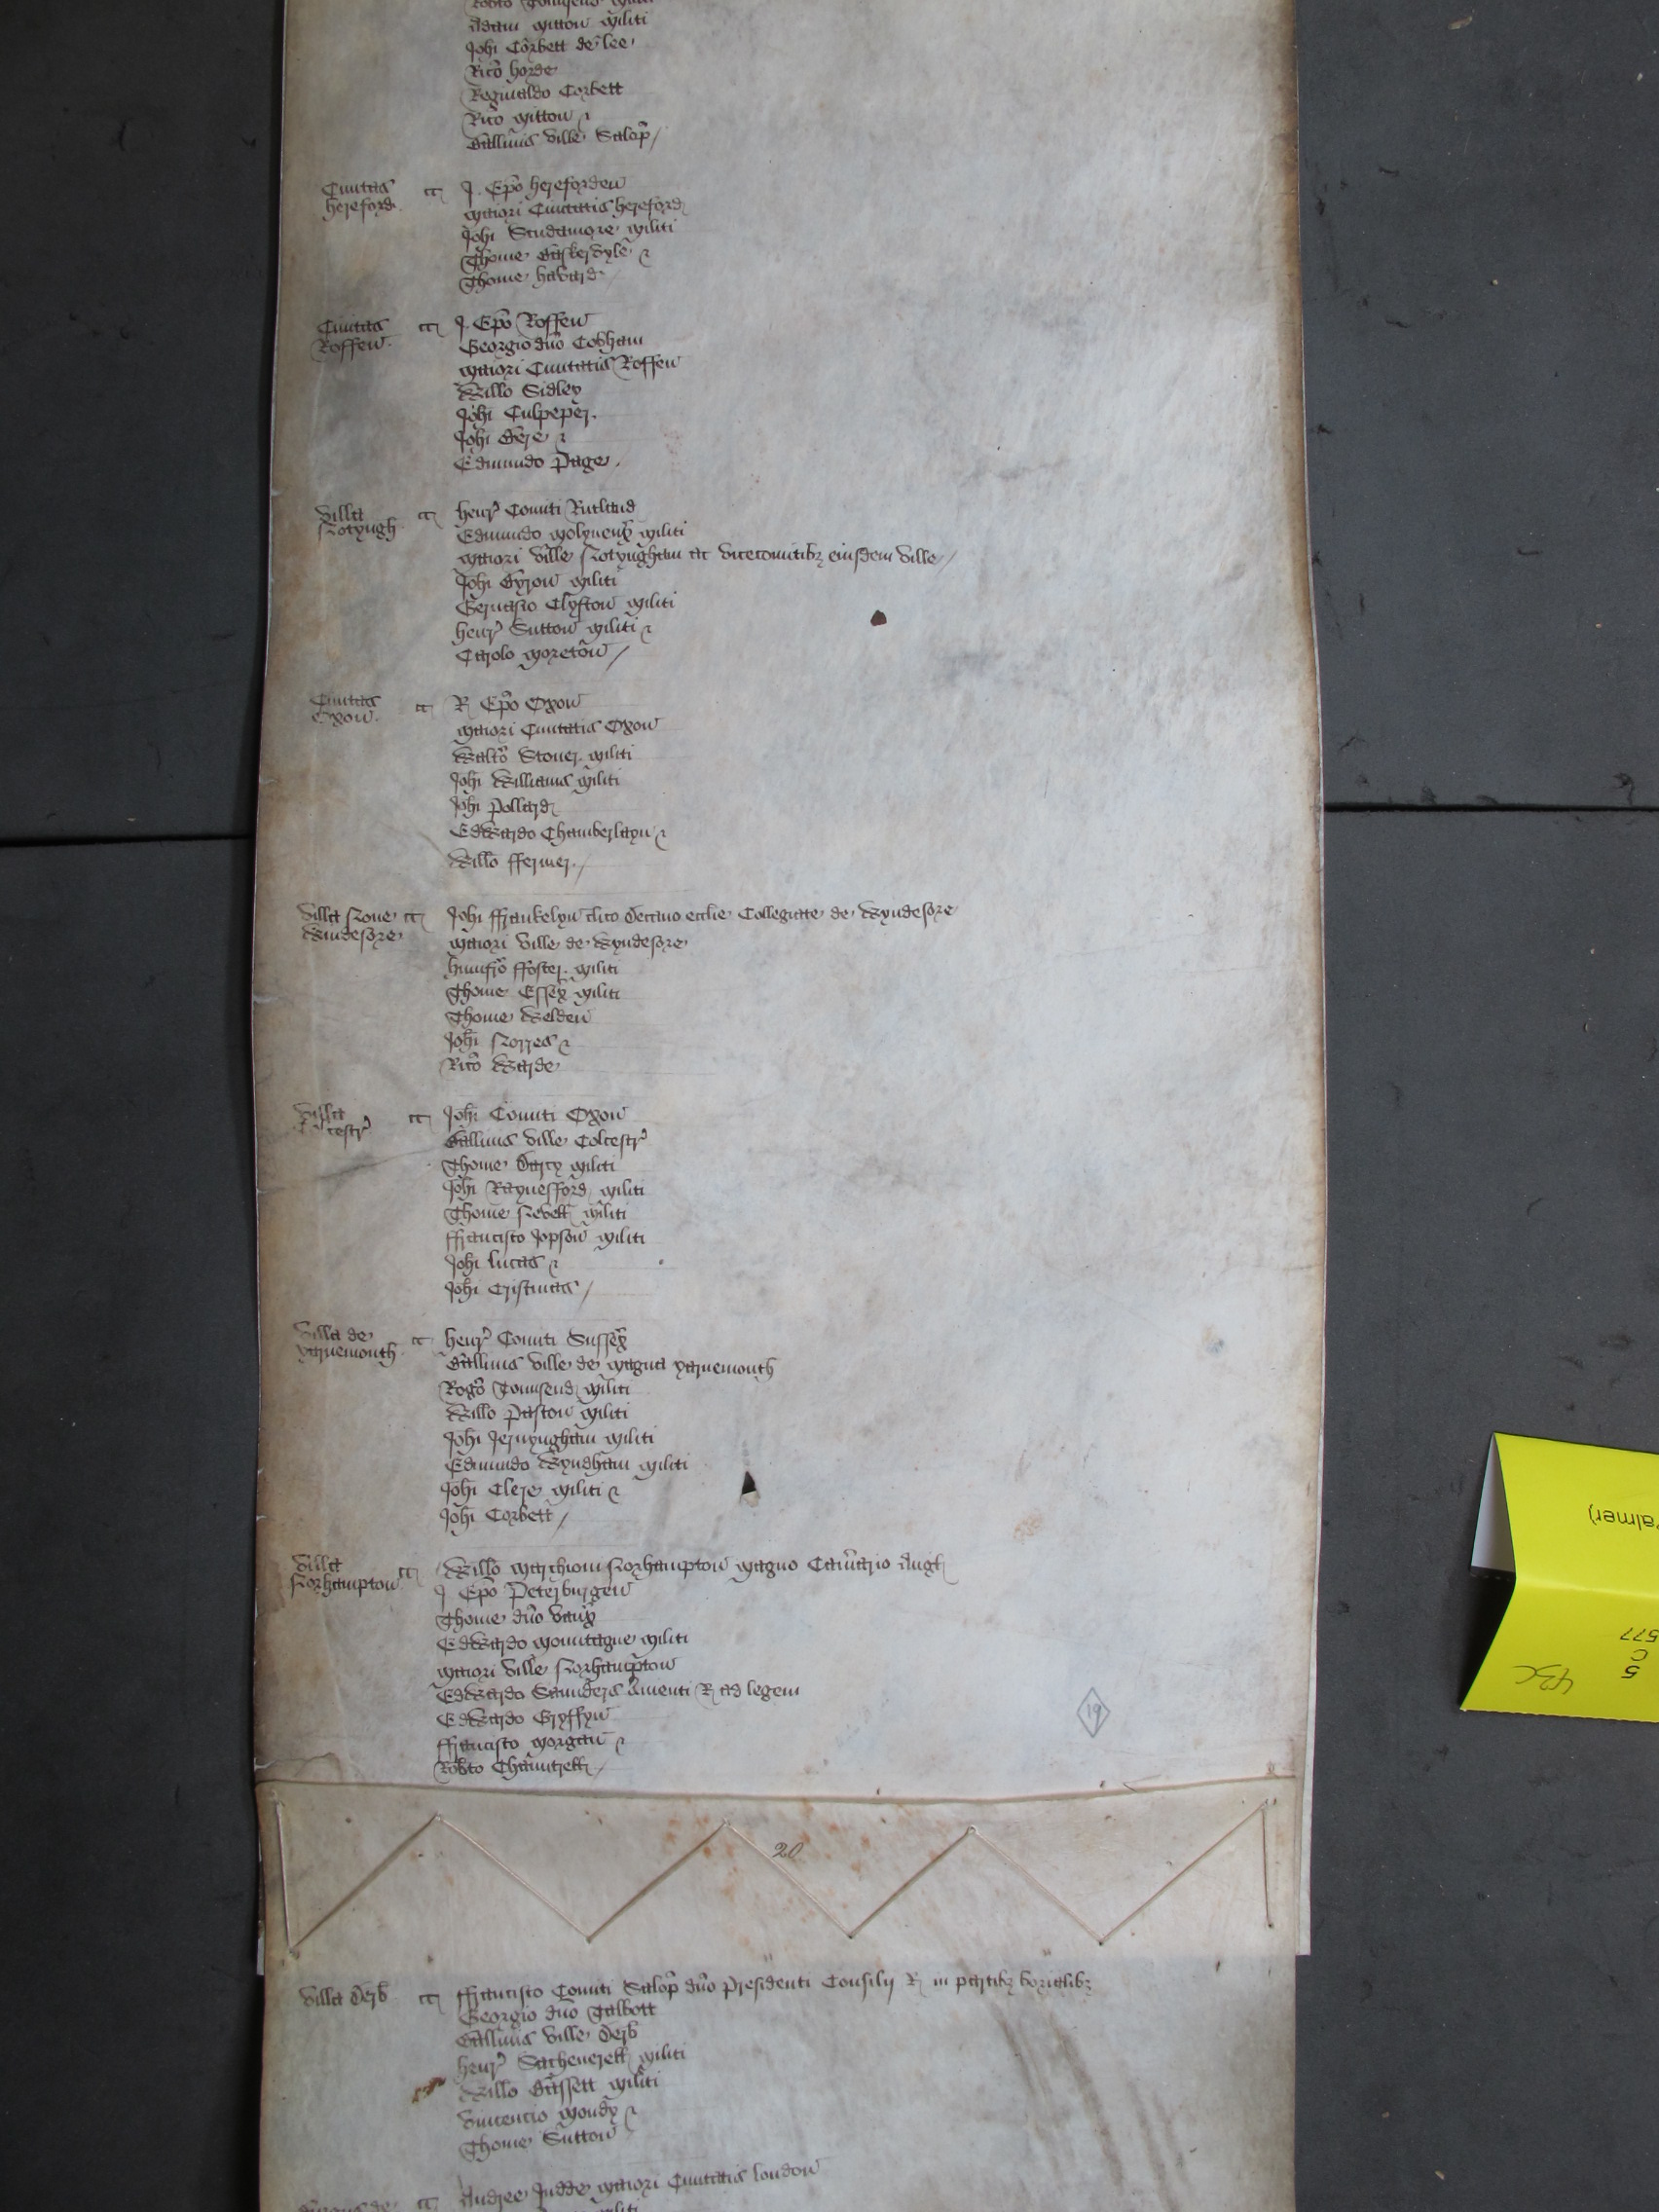 Robto Tounsend militi
Adam Mitton militi
Johi Corbett de lee
Rico Horde
Reginaldo Corbett
Rico Mitton &
Ballivis ville Salop /
Civitas Hereford. cc J. Epo Hereforden
Maiori Civitatis Hereford
Johi Scudamore militi
Thome Baskervyle &
Thome Havard
Civitas Roffen. cc J. Epo Roffen
Georgio dno Cobham
Maiori Civitatis Roffen
Willo Sidley
Johi Culpeper.
Johi Bere &
Edmundo Page.
Villa Notyngh cc Henr Comiti Rutland
Edmundo Molyneux militi
Maiori ville Notyngham ac vicecomitibz eiusdem ville /
Johi Byron militi
Gervasio Clyfton militi
Henr Sutton militi &
Carolo Moreton /
Civitas Oxon. cc R Epo Oxon
Maiori Civitatis Oxon
Walto Stoner militi
Johi Williams militi
Johi Pollard
Edwardo Chamberlayn &
Willo ffermer. /
Villa Nove Windesore cc Johi ffrankelyn clico Decano ecclie Collegiate de Wyndesore
Maiori ville de Wyndesore
Humfro ffoster militi
Thome Essex militi
Thome Welden
Johi Norres &
Rico Warde
Villa Colcestr cc Johi Comiti Oxon
Ballivis ville Colcestr
Thome Darcy militi
Johi Raynesfford militi
Thome Nevell militi
ffrancisco Jopson militi
Johi Lucas &
Johi Cristmas /
Villa de Yarnemouth cc Henr Comiti Sussex
Ballivis ville de magna Yarnemouth
Rogo Townsend militi
Willo Paston militi
Johi Jernyngham militi
Edmundo Wyndham militi
Johi Clere militi &
Johi Corbett /
Villa Norhampton cc Willo Marchioni Norhampton magno Camario Angl
J Epo Peterburgen
Thome dno Vaux
Edwardo Mountague militi
Maiori ville Norhampton
Edwardo Saunders svienti R ad legem
Edwardo Gryffyn
ffrancisco Morgan &
Robto Chauntrell /
19
20
Villa Derb cc ffrancisco Comiti Salop dno Presidenti Consilij R in partibz borialibz
Georgio dno Talbott
Ballivis ville Derb
Henr Sacheverell militi
Willo Bassett militi
Vincencio Mondy &
Thome Sutton
cc Andree Judde Maiori Civitatis london
Palmer)
5
C
577
43C